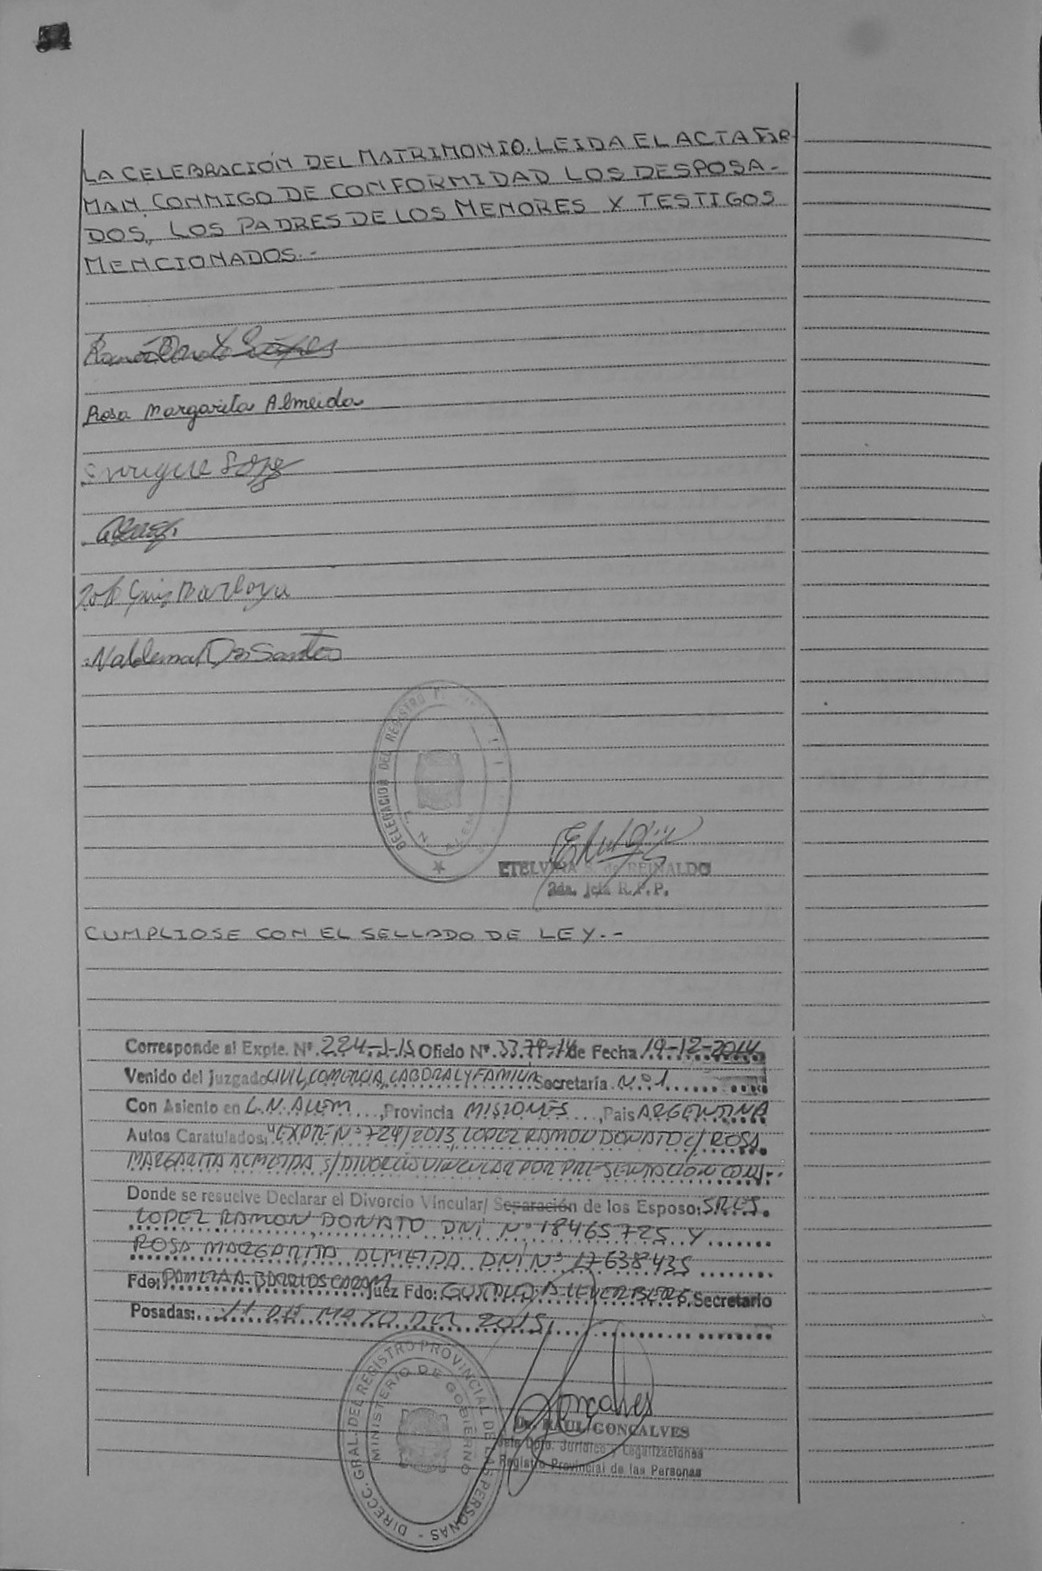 LA CELEBRACIÓN DEL MATRIMONIO. LEIDA EL ACTA FIR-
MAN CONMIGO DE CONFORMIDAD LOS DESPOSA-
DOS, LOS PADRES DE LOS MENORES Y TESTIGOS
MENCIONADOS.-
Ramón Donato López
Rosa Margarita Almeida
Enrique
Waldemar Dos Santos
DELEGACION DEL REGISTRO
L. N. ALEM
ETELVINA S. de REINALDO
2da. Jefa R.P.P.
CUMPLIOSE CON EL SELLADO DE LEY.-
Corresponde al Expte. Nº. 224-J-15 Oficio Nº. 3379-14 de Fecha 19-12-2014
Venido del Juzgado CIVIL, COMERCIAL, LABORAL Y FAMILIA Secretaría Nº1
Con Asiento en L.N. ALEM, Provincia MISIONES, Pais ARGENTINA
Autos Caratulados: "EXPTE Nº 724/2013 LOPEZ RAMON DONATO C/ ROSA
MARGARITA ALMEIDA S/ DIVORCIO VINCULAR POR PRESENTACIÓN CONJ.
Donde se resuelve Declarar el Divorcio Vincular/ Separación de los Esposo: SRES.
LOPEZ RAMON DONATO DNI Nº 18465725 Y
ROSA MARGARITA ALMEIDA DNI Nº 17638435
Fdo: Juez Fdo: Secretario
Posadas: 11 DE MAYO DEL 2015
DIRECC. GRAL. DEL REGISTRO PROVINCIAL DE LAS PERSONAS
MINISTERIO DE GOBIERNO
Gonçalves
Dr. RAUL GONCALVES
Jefe Dpto. Jurídico y Legalizaciones
Registro Provincial de las Personas